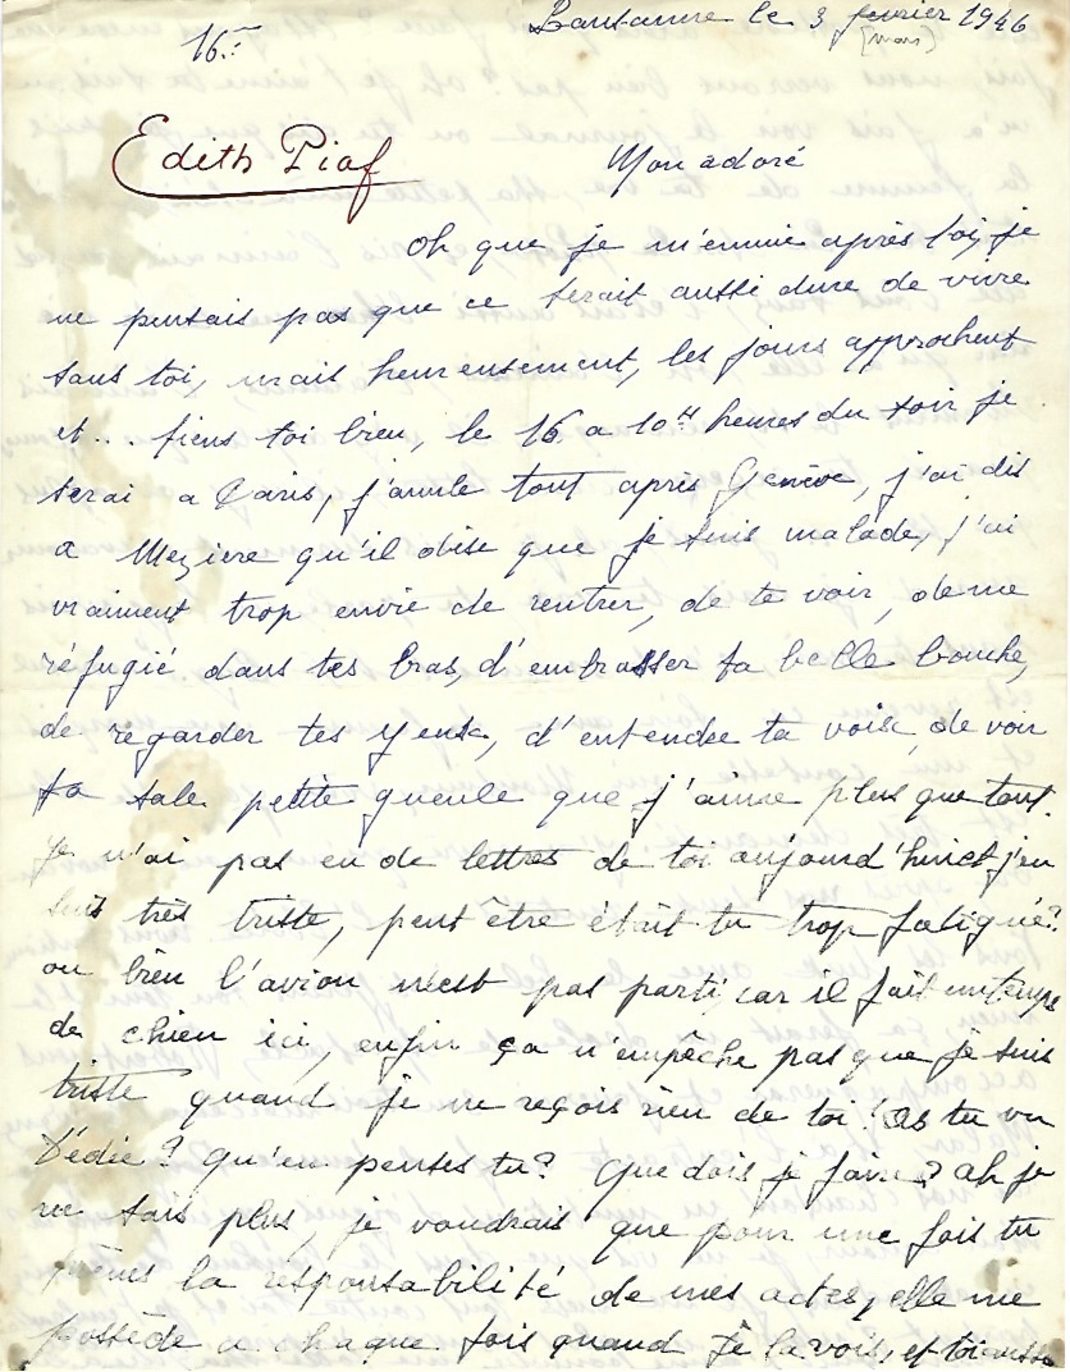 Lausanne le 3 fevrier 1946
(mars)
16.-
Edith Piaf
Mon adoré
Oh que je m'ennuie après toi, je
ne pensais pas que ce serait aussi dure de vivre
sans toi, mais heureusement, les jours approchent
et... tiens toi bien, le 16 a 10H heures du soir je
serai a Paris, j'annule tout après Genève, j'ai dis
a Meziere qu'il dise que je suis malade, j'ai
vraiment trop envie de rentrer, de te voir, de me
réfugié dans tes bras, d'embrasser ta belle bouche,
de regarder tes yeux, d'entendre ta voix, de voir
ta sale petite gueule que j'aime plus que tout.
Je n'ai pas eu de lettres de toi aujourd'hui et j'en
suis très triste, peut être était tu trop fatigué?
ou bien l'avion n'est pas parti, car il fait un temps
de chien ici, enfin ça n'empêche pas que je suis
triste quand je ne reçois rien de toi! As tu vu
Dédée? qu'en penses tu? Que dois je faire? ah je
ne sais plus, je voudrais que pour une fois tu
prènes la résponsabilité de mes actes, elle me
possède a chaque fois quand je la vois, et toi aussi